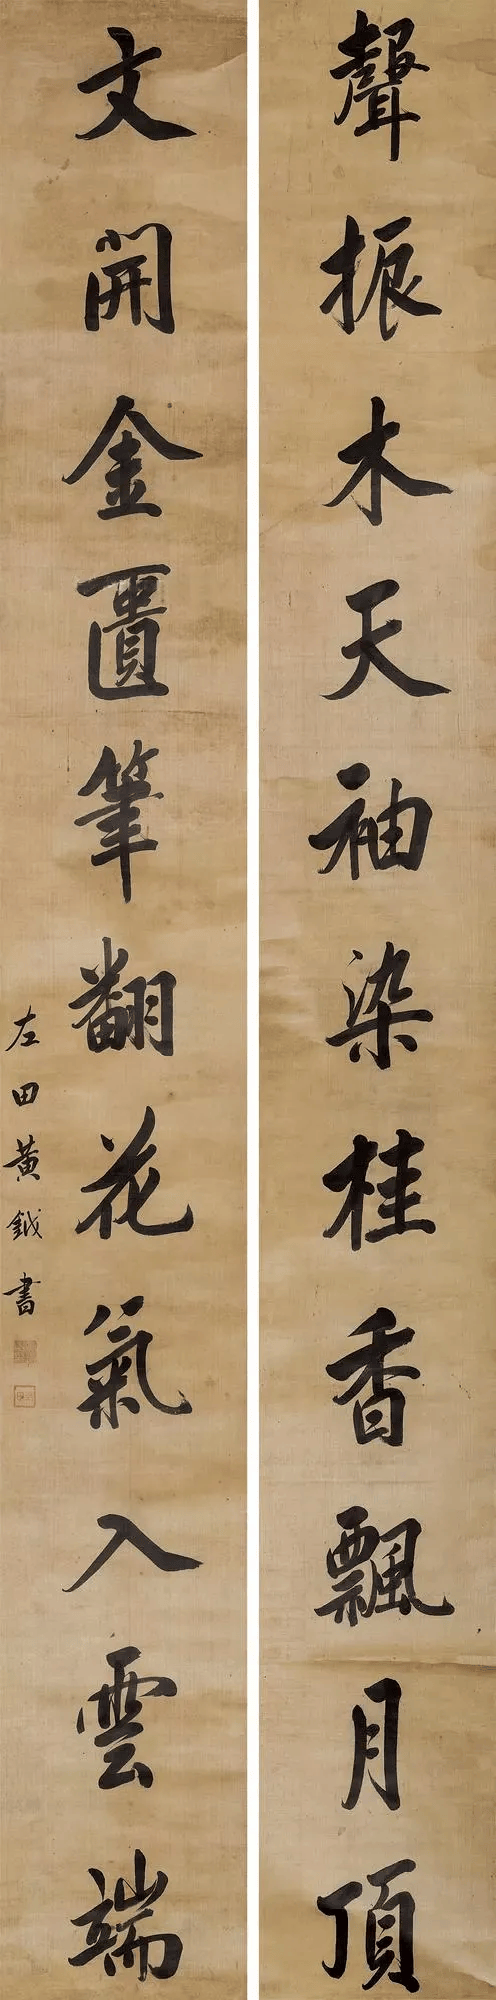 聲振木天袖染桂香飄月頂
文開金匱筆翻花氣入雲端
左田黃鉞書